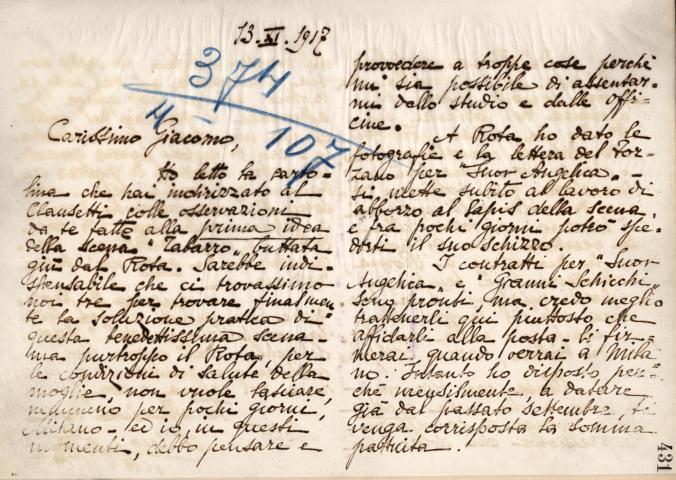 13. XI. 1917
374
4 - 107
Carissimo Giacomo,
Ho letto la carto-
lina che hai indirizzato al
Clausetti colle osservazioni
da te fatte alla prima idea
della scena "Tabarro" buttata
giù dal Rota. Sarebbe indi-
spensabile che ci trovassimo
noi tre per trovare finalmen
te la soluzione pratica di
questa benedettissima scena-
ma purtroppo il Rota, per
le condizioni di salute della
moglie, non vuole lasciare,
nemmeno per pochi giorni,
Milano - ed io, in questi
momenti, debbo pensare e
provvedere a troppe cose perchè
mi sia possibile di assentar-
mi dallo studio e dalle offi-
cine.
A Rota ho dato le
fotografie e la lettera del For-
zano per "Suor Angelica" -
si mette subito al lavoro di
abbozzo al lapis della scena,
e fra pochi giorni potrò spe-
dirti il suo schizzo.
I contratti per "Suor
Angelica" e "Gianni Schicchi"
sono pronti, ma credo meglio
trattenerli qui piuttosto che
affidarli alla posta - li fir-
merai quando verrai a Mila
no. Intanto ho disposto per-
chè mensilmente, a datare
già dal passato settembre, ti
venga corrisposta la somma
pattuita.
431